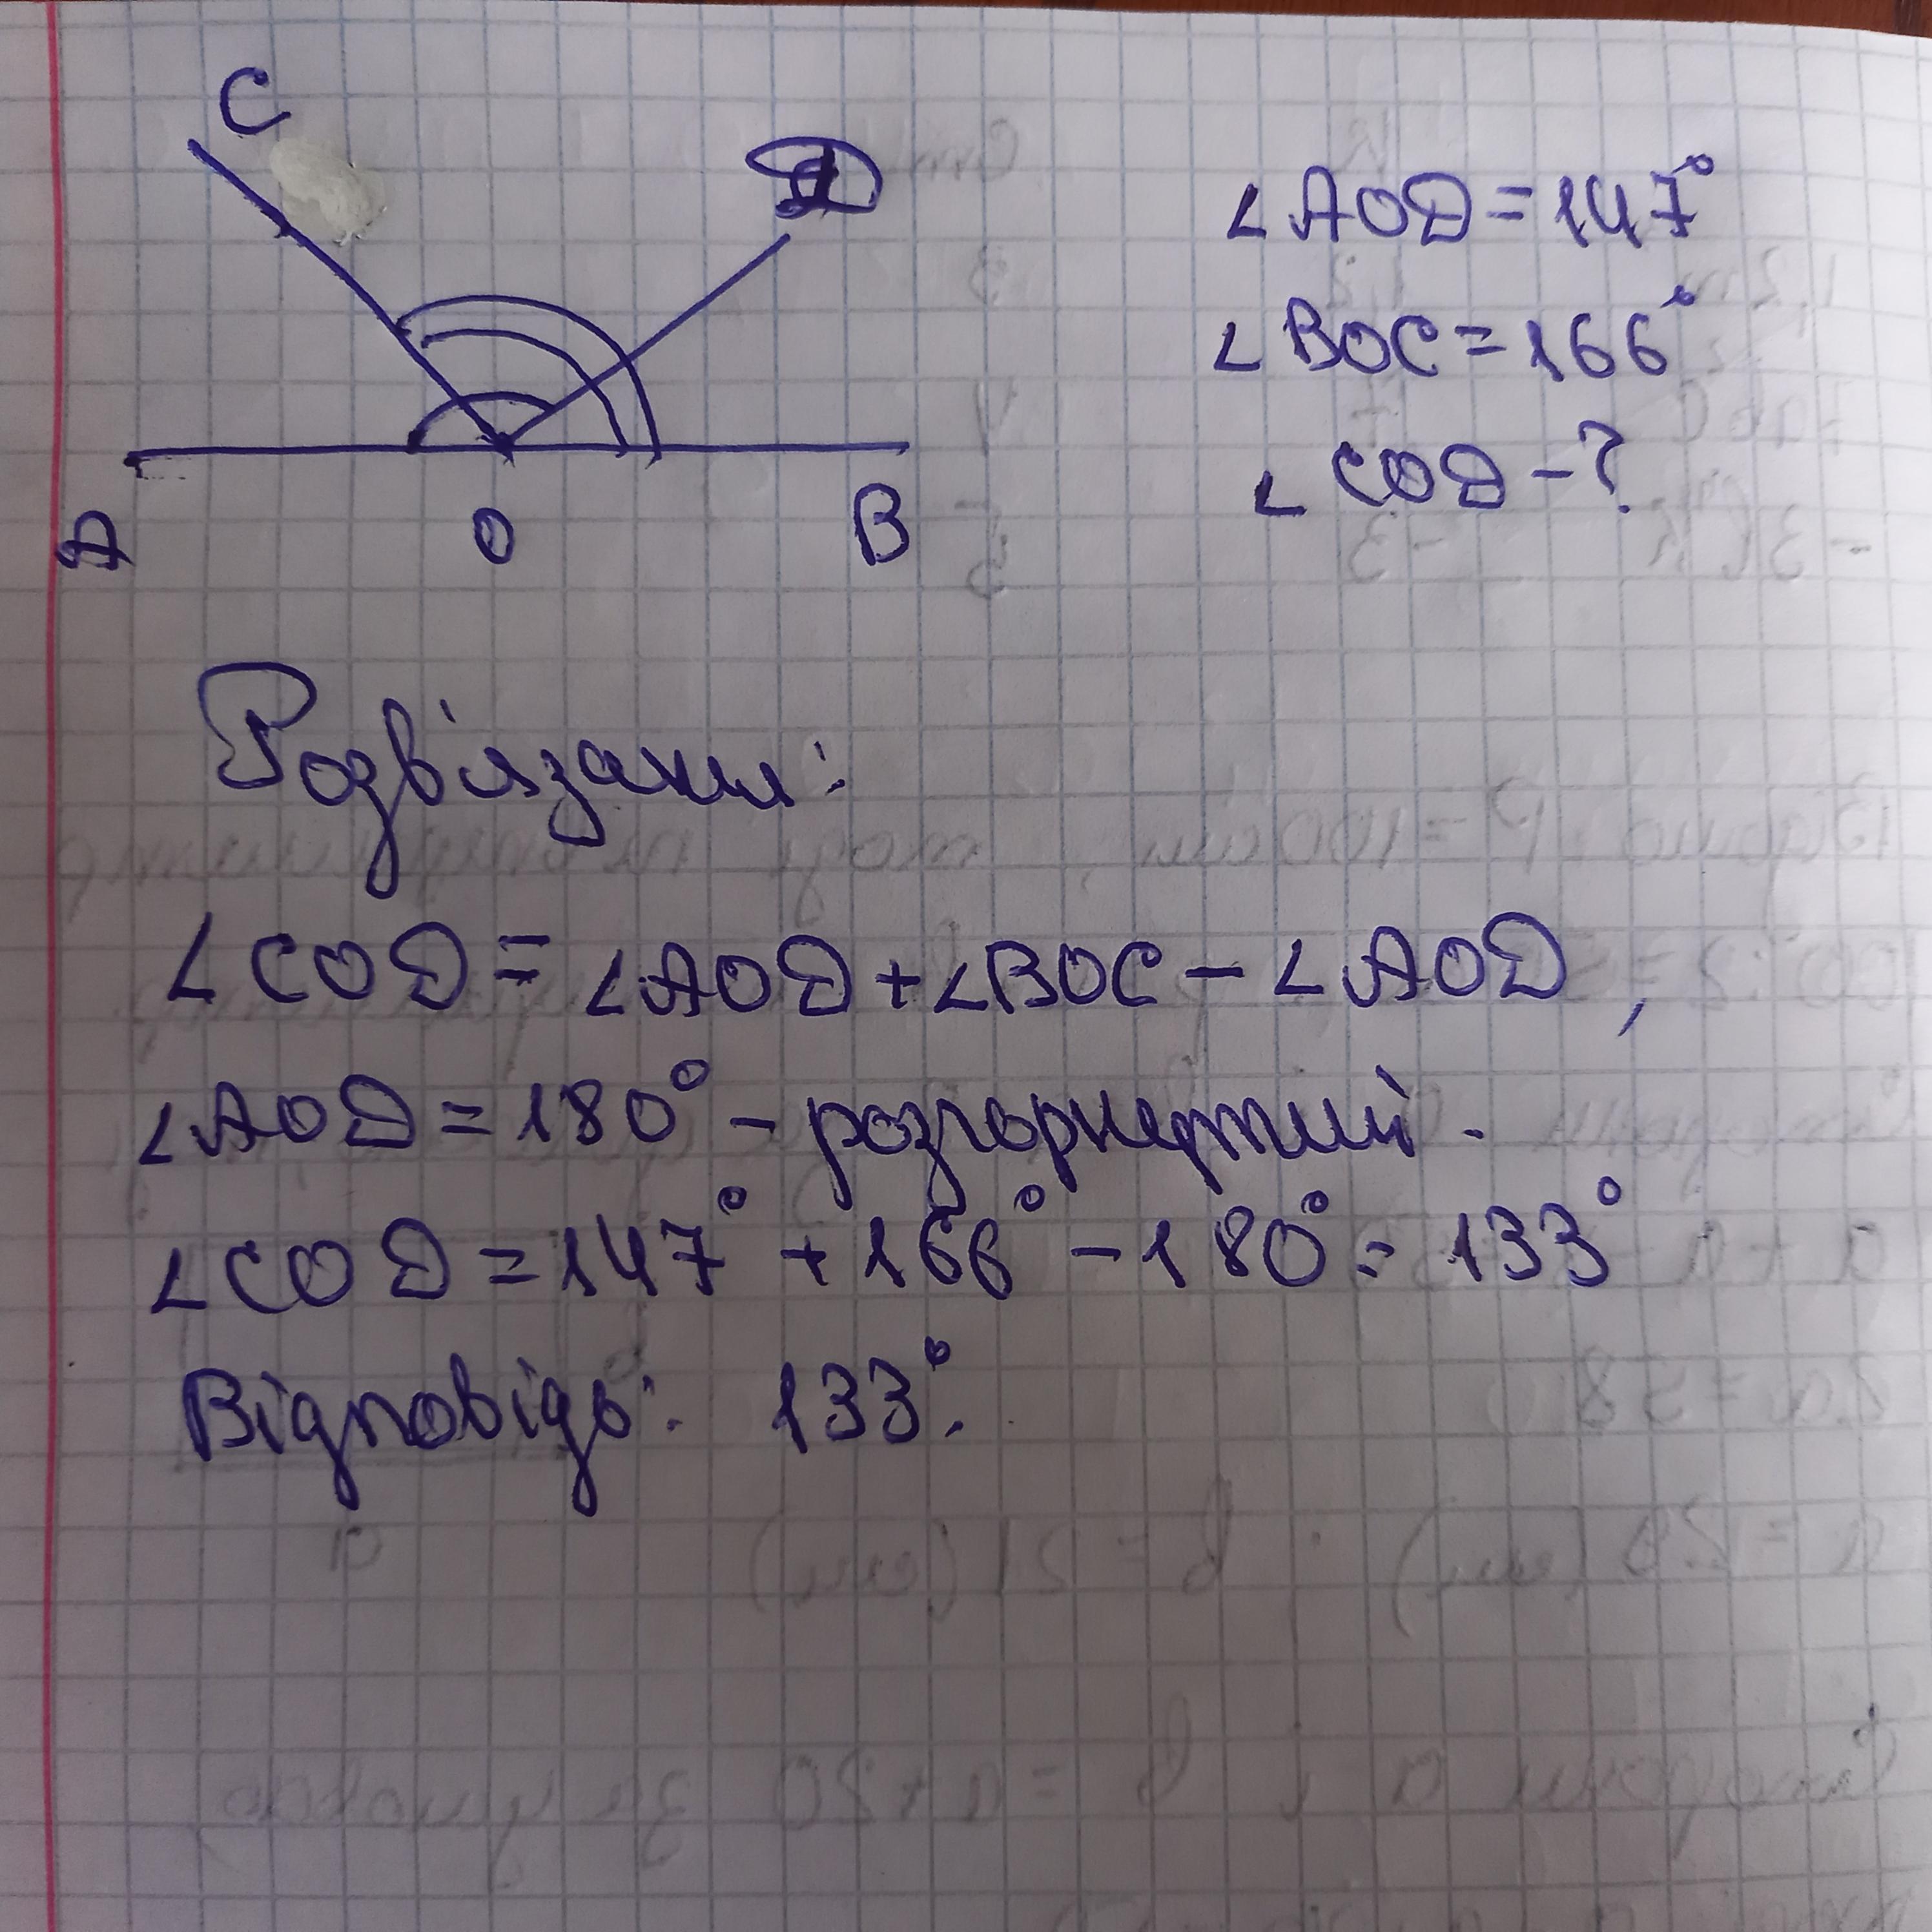 C
D
A
O
B
∠AOD = 147°
∠BOC = 166°
∠COD - ?
Розв'язання:
∠COD = ∠AOD + ∠BOC - ∠AOD,
∠AOD = 180° - розгорнутий.
∠COD = 147° + 166° - 180° = 133°
Відповідь: 133°.